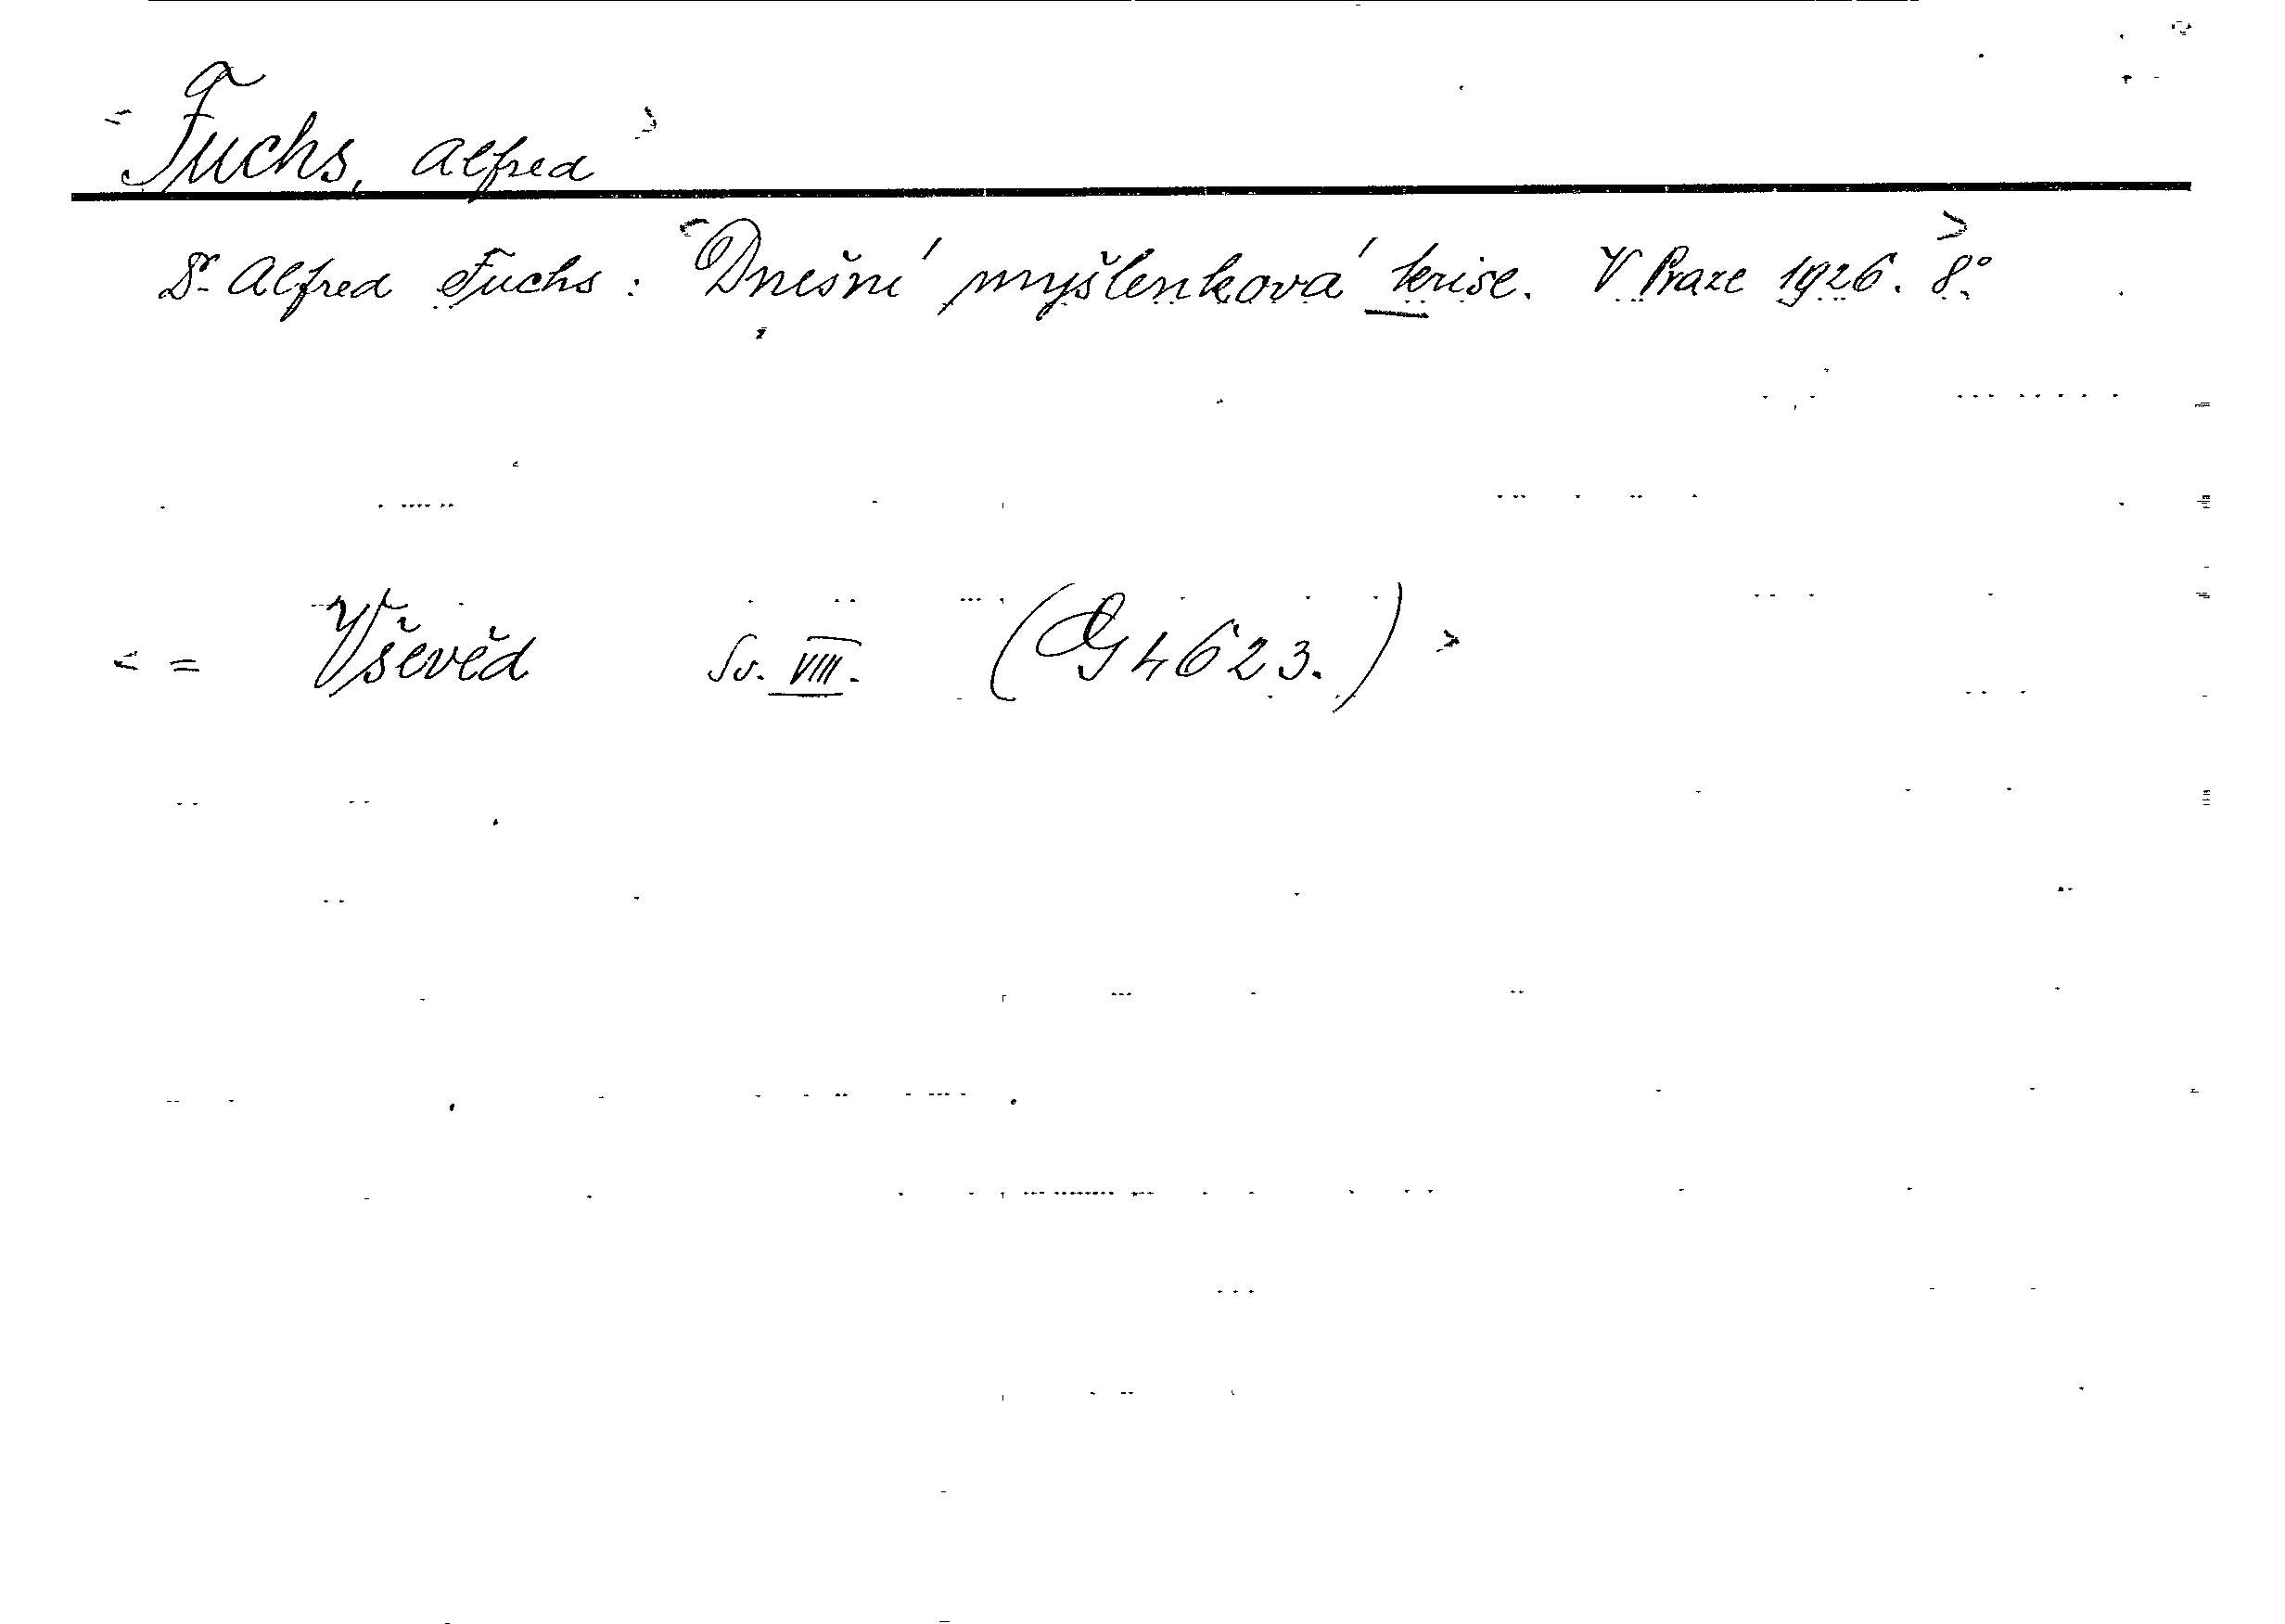 <Fuchs, Alfred>
Dr. Alfred Fuchs: <Dnešní myšlenková krise. V Praze 1926. 8°.>
< = Vševěd Sv. VIII. (G 4623.) >